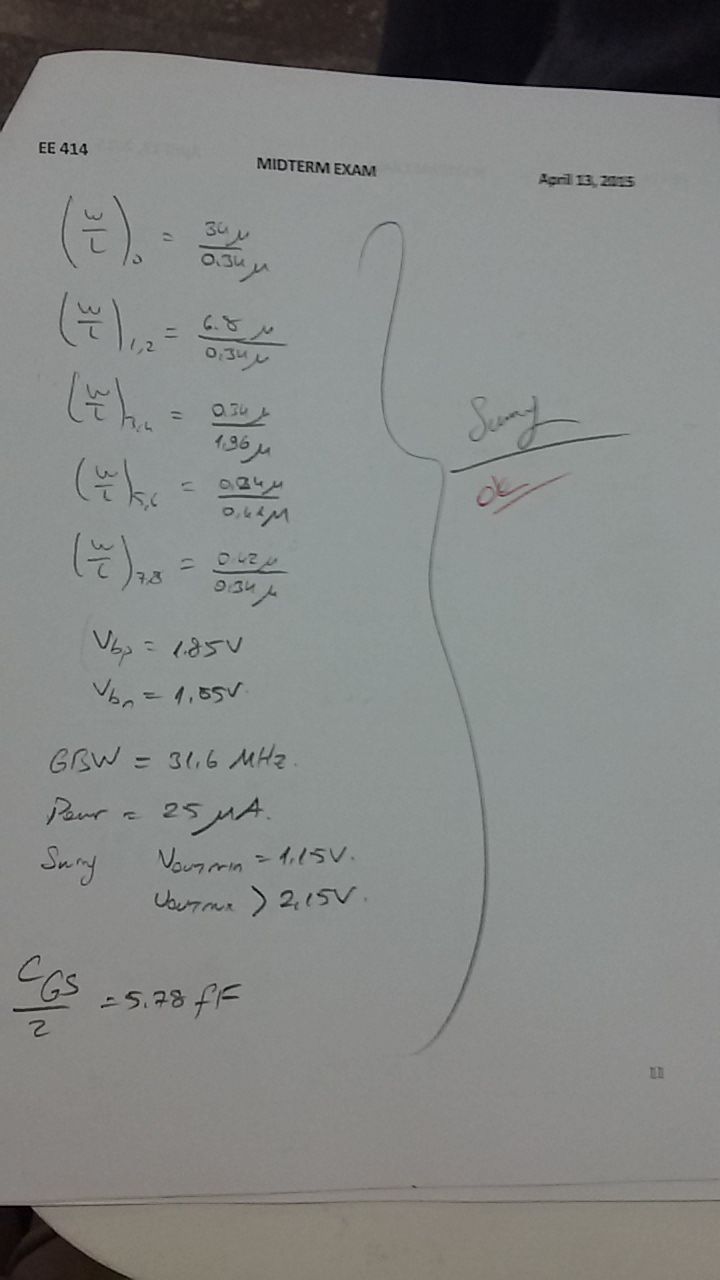 EE 414
MIDTERM EXAM
April 13, 2015
(W/L)0 = 34µ/0.34µ
(W/L)1,2 = 6.8µ/0.34µ
(W/L)3,4 = 0.34µ/1.96µ
(W/L)5,6 = 0.34µ/µ
(W/L)7,8 = 0.42µ/0.34µ
Vbp = 1.85V
Vbn = 1.55V.
GBW = 31.6 MHz.
= 25 µA.
Voutmin = 1.15V.
Voutmax > 2.15V.
CGS/2 = 5.78 fF
ok
11